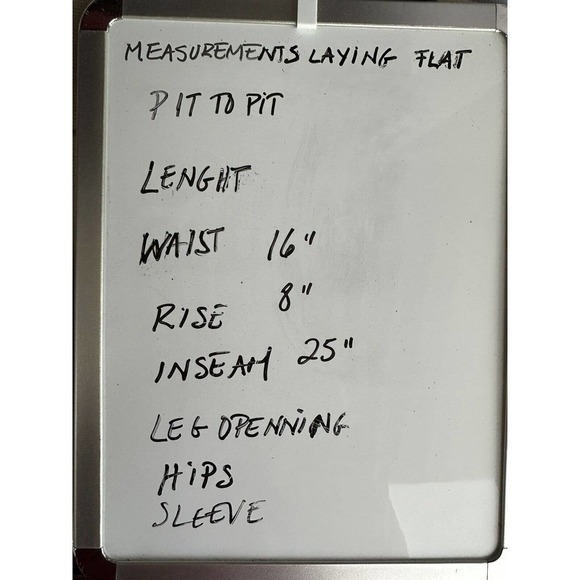 MEASUREMENTS LAYING FLAT
PIT TO PIT
LENGHT
WAIST 16"
RISE 8"
INSEAM 25"
LEG OPENNING
HIPS
SLEEVE